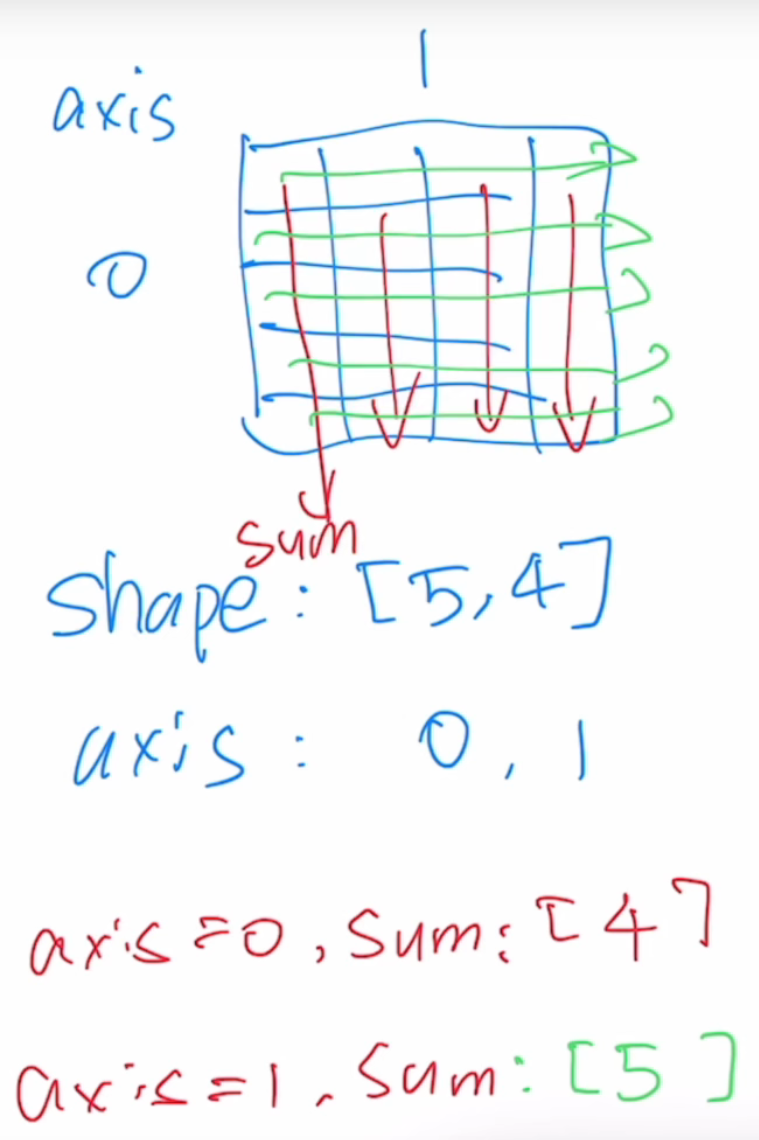 1
axis
0
sum
shape: [5,4]
axis: 0, 1
axis=0, sum: [4]
axis=1, sum: [5]